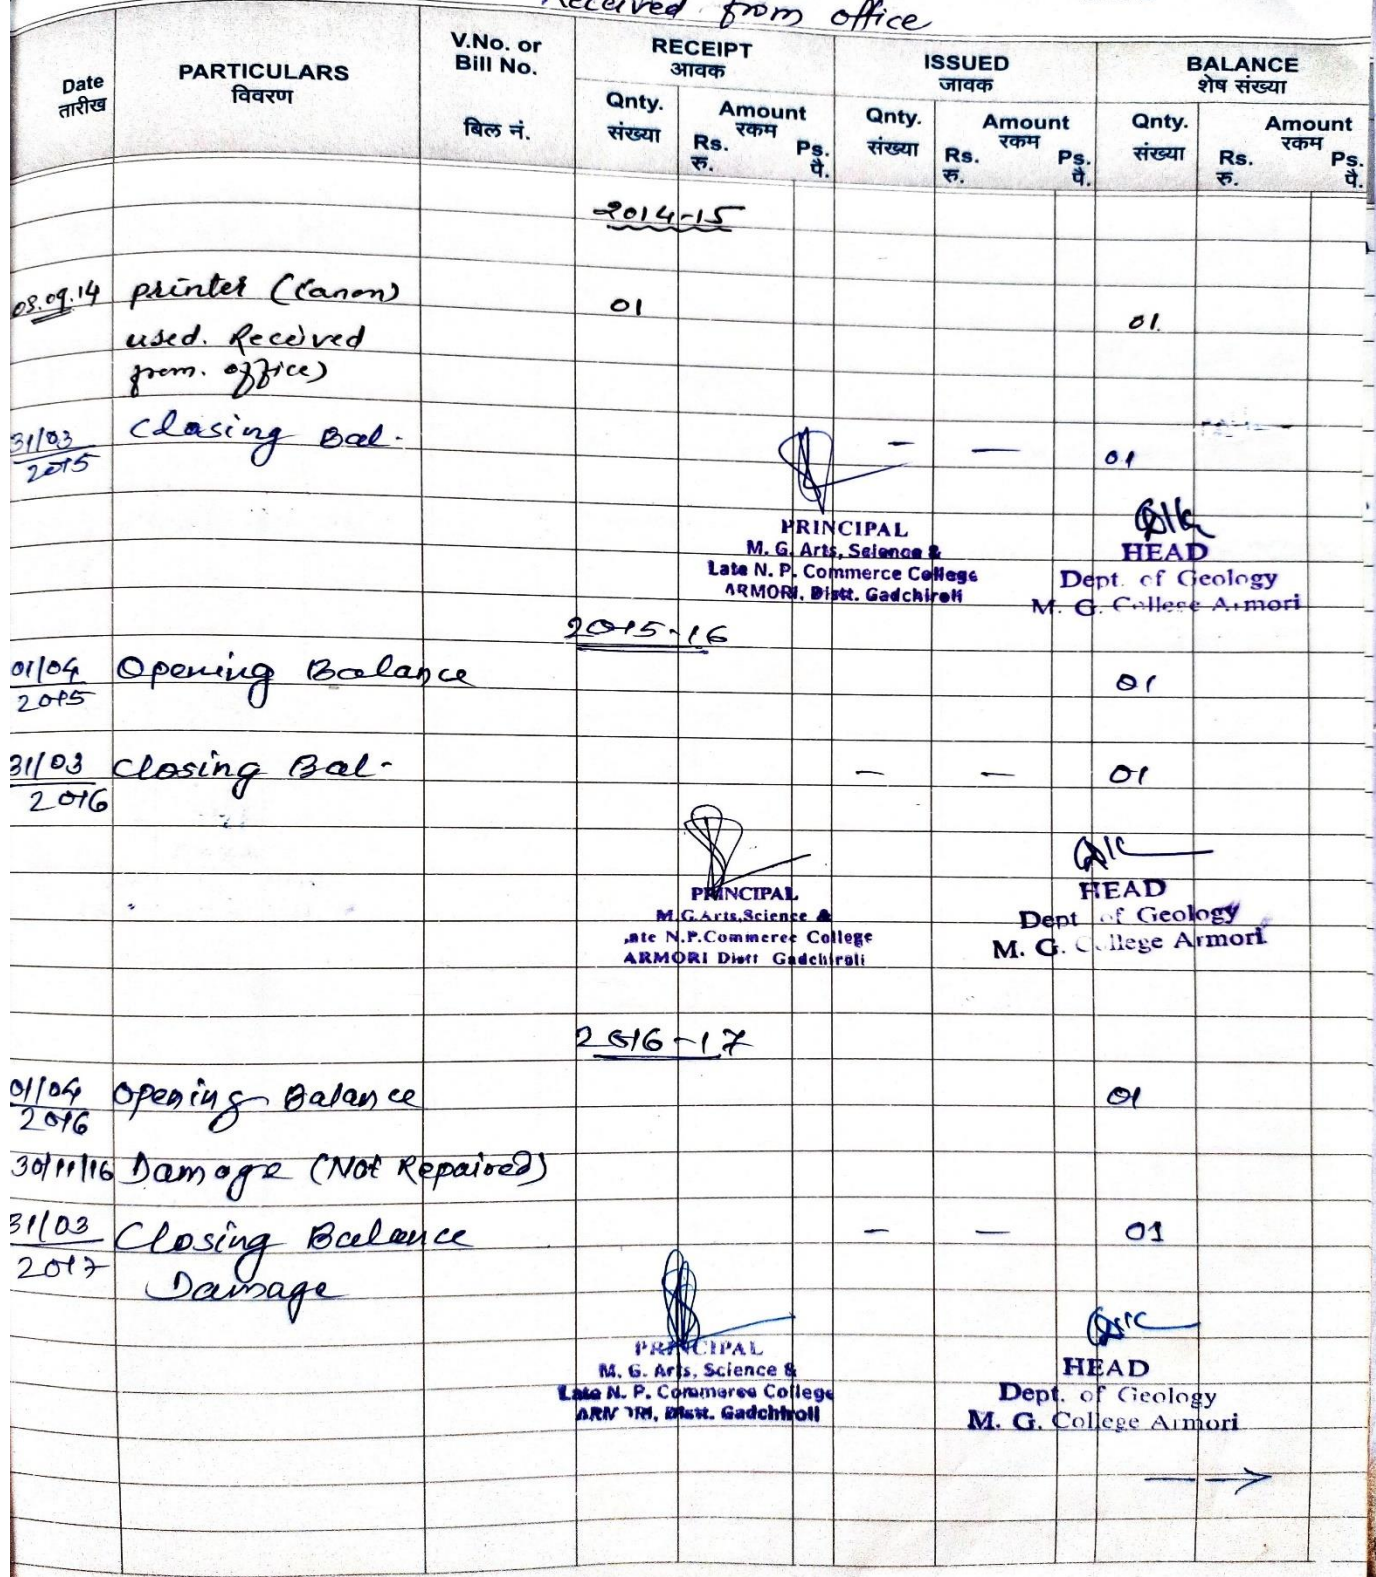 Received from office
Date
तारीख
PARTICULARS
विवरण
V.No. or
Bill No.
बिल नं.
RECEIPT
आवक
ISSUED
जावक
BALANCE
शेष संख्या
Qnty.
संख्या
Amount
रकम
Rs.
रु.
Ps.
पै.
Qnty.
संख्या
Amount
रकम
Rs.
रु.
Ps.
पै.
Qnty.
संख्या
Amount
रकम
Rs.
रु.
Ps.
पै.
2014-15
08.09.14 printer (Canon) 01 01.
used. Received
from. office)
31/03 Closing Bal. - — 01
2015
PRINCIPAL
M. G. Arts, Science &
Late N. P. Commerce College
ARMORI, Distt. Gadchiroli
HEAD
Dept. of Geology
M. G. College Armori
2015-16
01/04 Opening Balance 01
2015
31/03 Closing Bal- — — 01
2016
PRINCIPAL
M.G.Arts,Science &
ate N.P.Commerce College
ARMORI Distt Gadchiroli
HEAD
Dept of Geology
M. G. College Armori
2016-17
01/04 Opening Balance 01
2016
30/11/16 Damage (Not Repaired)
31/03 Closing Balance - — 01
2017 Damage
PRINCIPAL
M. G. Arts, Science &
Late N. P. Commerce College
ARMORI, Distt. Gadchiroli
HEAD
Dept. of Geology
M. G. College Armori